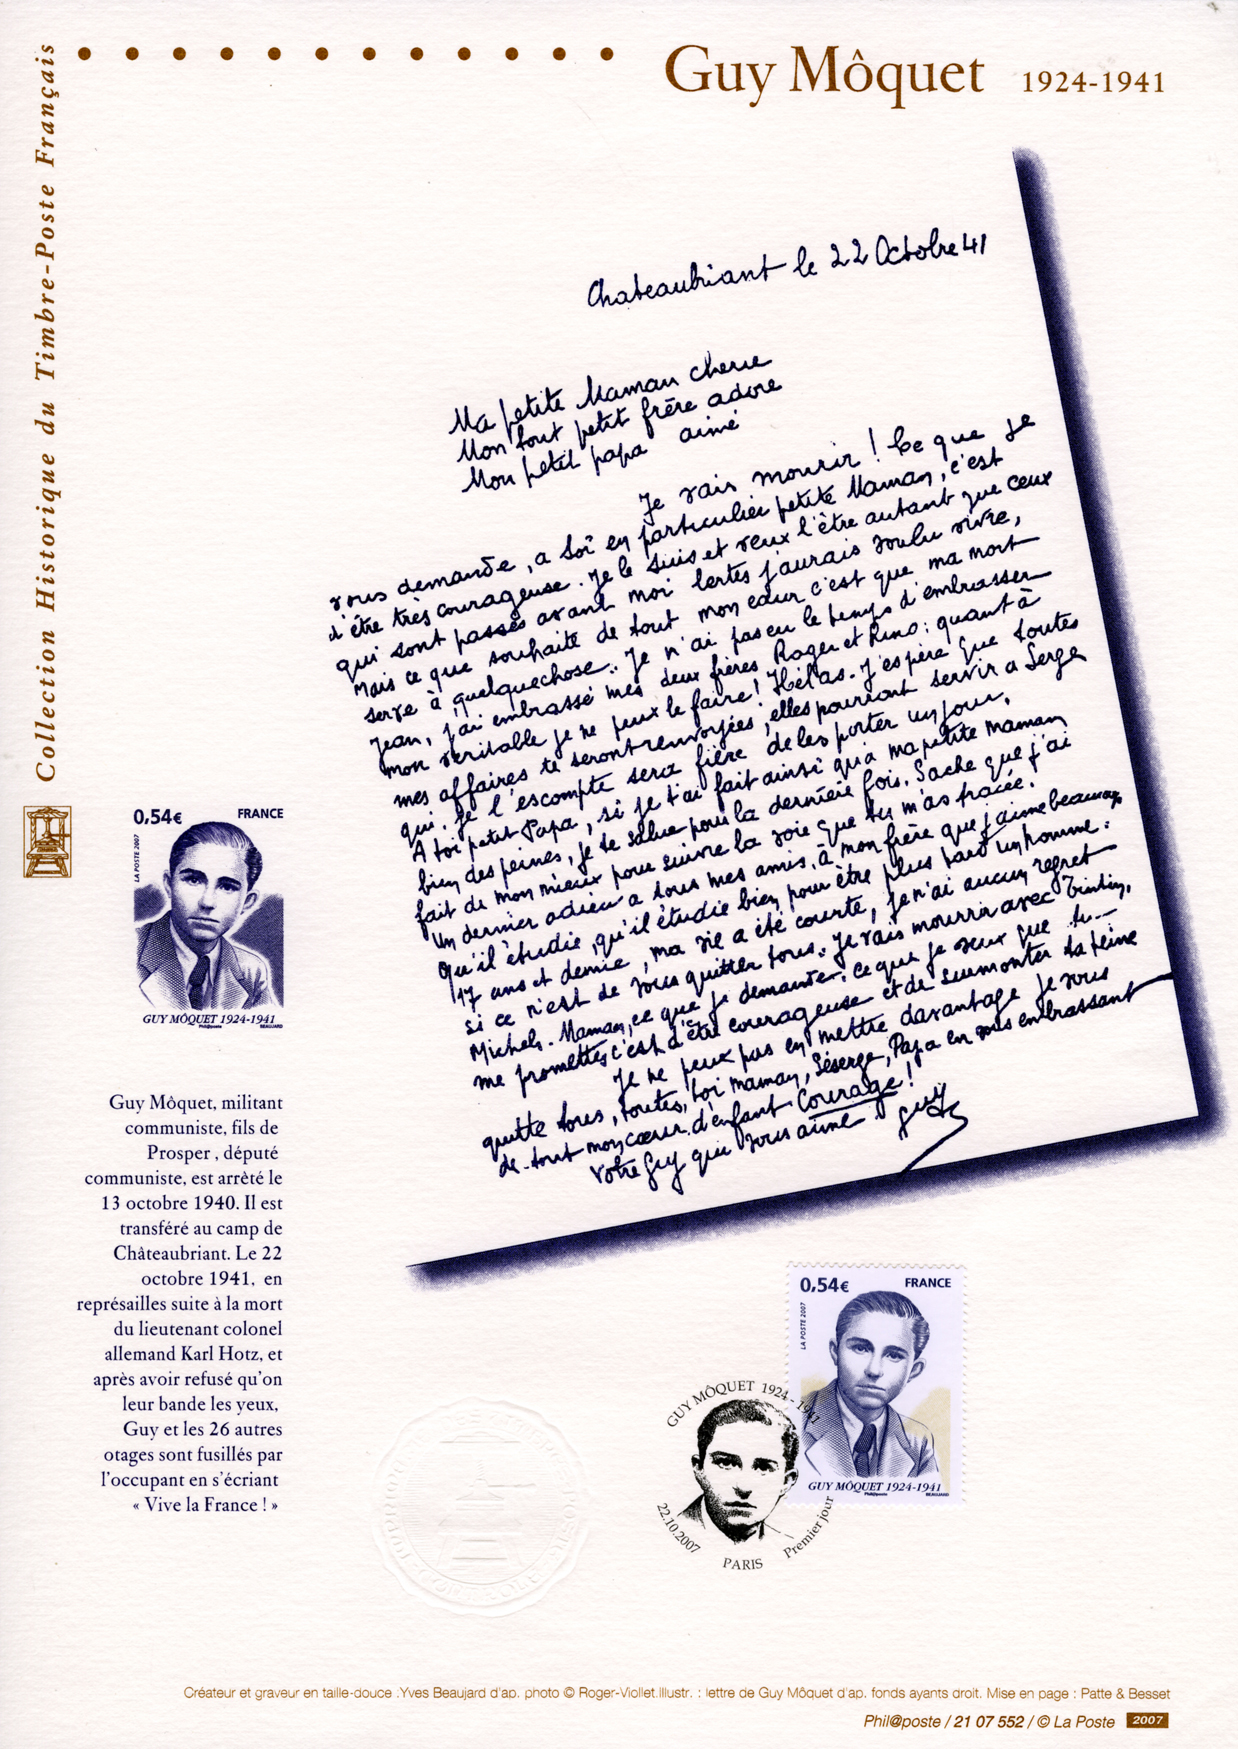 Guy Môquet 1924-1941
Collection Historique du Timbre-Poste Français
Chateaubriant le 22 Octobre 41
Ma petite Maman cherie
Mon tout petit frère adore
Mon petit papa aimé
Je vais mourir ! Ce que je
vous demande, a toi en particulier petite Maman, c'est
d'être très courageuse. Je le suis et veux l'être autant que ceux
qui sont passés avant moi Certes j'aurais voulu vivre,
Mais ce que souhaite de tout mon cœur c'est que ma mort
serve à quelquechose. Je n'ai pas eu le temps d'embrasser
Jean, j'ai embrassé mes deux frères Roger et Rino: quant à
mon veritable je ne peux le faire ! Hélas. J'espère que toutes
mes affaires te seront renvoyées, elles pourront servir a Serge
qui je l'escompte sera fière de les porter un jour.
A toi petit Papa, si je t'ai fait ainsi qu'a ma petite maman
bien des peines, je te salue pour la dernière fois. Sache que j'ai
fait de mon mieux pour suivre la voie que tu m'as tracée.
Un dernier adieu a tous mes amis, à mon frère que j'aime beaucoup
Qu'il étudie, qu'il étudie bien pour être plus tard un homme.
17 ans et demie, ma vie a été courte, je n'ai aucun regret
si ce n'est de vous quitter tous. Je vais mourrir avec Tintin,
Michels. Maman, ce que je demande, ce que je veux que tu
me promettes c'est d'être courageuse et de surmonter ta peine
Je ne peux pas en mettre davantage Je vous
quitte tous, toutes, toi maman, Séserge, Papa en vous embrassant
de tout mon cœur d'enfant Courage !
Votre Guy qui vous aime
Guy
0,54€ FRANCE
LA POSTE 2007
GUY MÔQUET 1924-1941
Phil@poste BEAUJARD
Guy Môquet, militant
communiste, fils de
Prosper , député
communiste, est arrêté le
13 octobre 1940. Il est
transféré au camp de
Châteaubriant. Le 22
octobre 1941, en
représailles suite à la mort
du lieutenant colonel
allemand Karl Hotz, et
après avoir refusé qu'on
leur bande les yeux,
Guy et les 26 autres
otages sont fusillés par
l'occupant en s'écriant
« Vive la France ! »
0,54€ FRANCE
LA POSTE 2007
GUY MÔQUET 1924-1941
Phil@poste BEAUJARD
GUY MÔQUET 1924-1941
22.10.2007
PARIS
Premier jour
Créateur et graveur en taille-douce :Yves Beaujard d'ap. photo © Roger-Viollet.Illustr. : lettre de Guy Môquet d'ap. fonds ayants droit. Mise en page : Patte & Besset
Phil@poste / 21 07 552 / © La Poste 2007